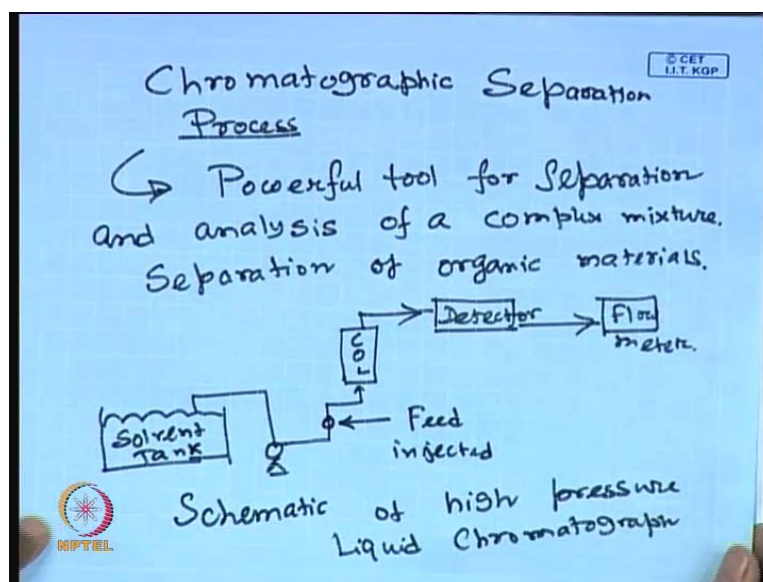 © CET
I.I.T. KGP
Chromatographic Separation
Process
Powerful tool for Separation
and analysis of a complex mixture.
Separation of organic materials.
Detector
Flow
meter.
COL
Feed
injected
Solvent
Tank
Schematic of high pressure
Liquid Chromatograph
NPTEL